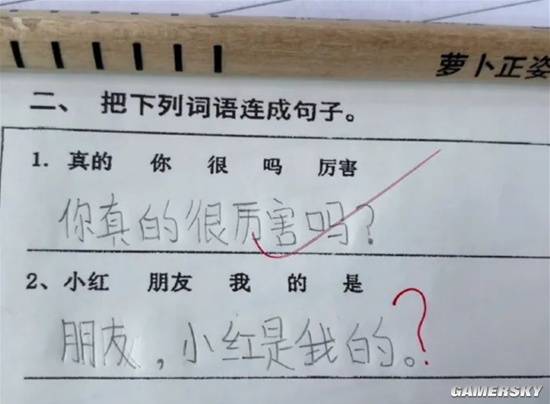 萝卜正姿
二、把下列词语连成句子。
1. 真的 你 很 吗 厉害
你真的很厉害吗？
2、小红 朋友 我 的 是
朋友，小红是我的。?
GAMERSKY